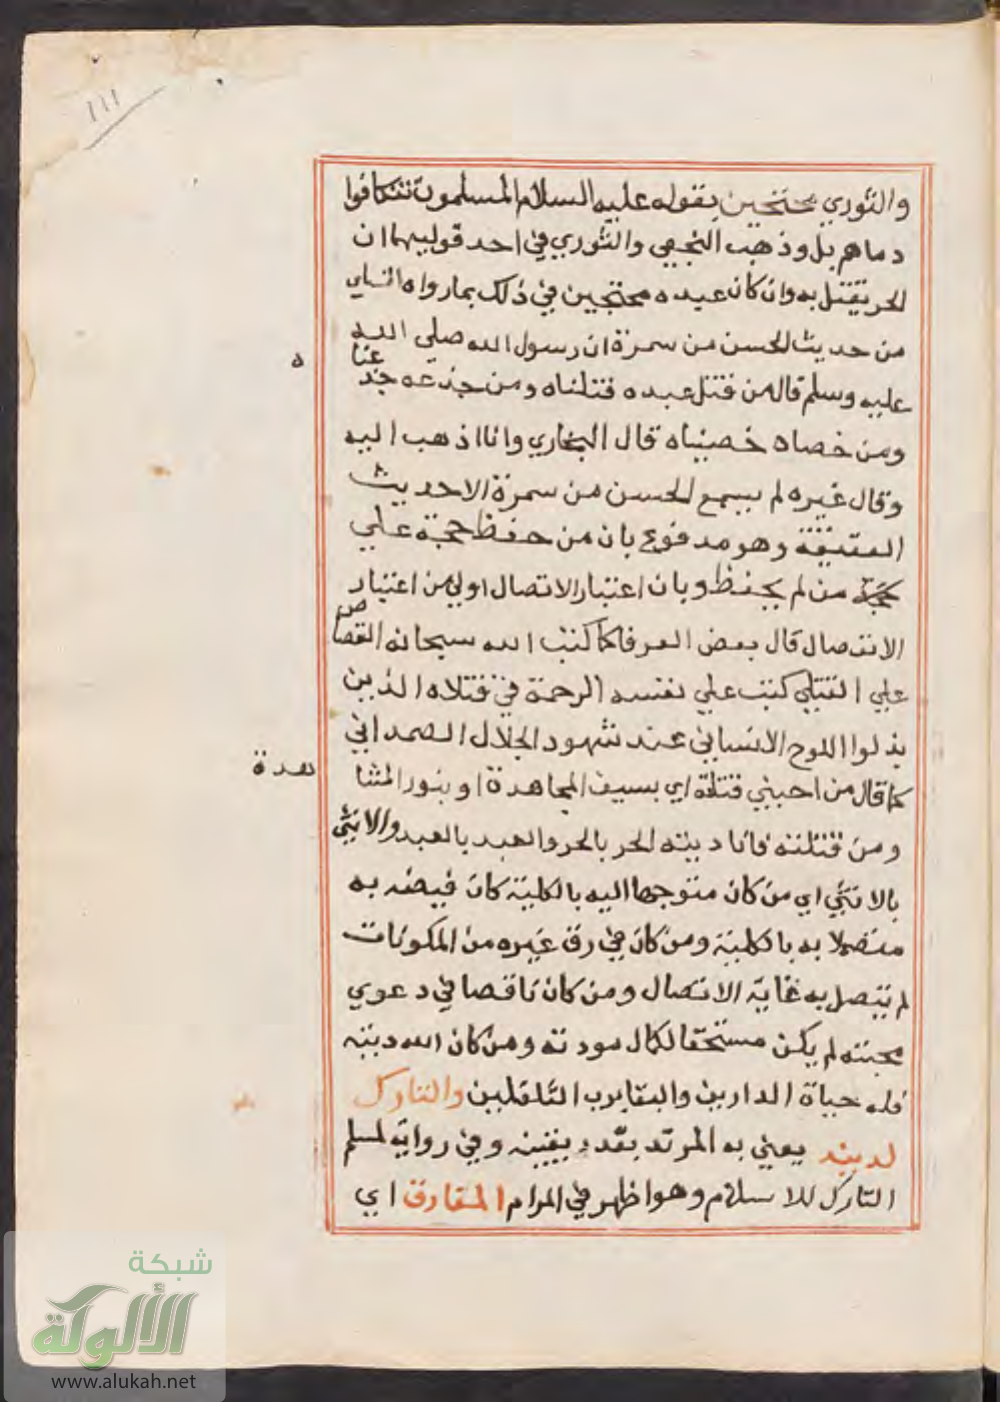 ١١١
والثوري محتجين بقوله عليه السلام المسلمون تتكافوا
دماهم بل وذهب النخعي والثوري في احد قوليهما ان
الحر يقتل به وان كان عبده محتجين في ذلك بما رواه النساي
من حديث الحسن من سمرة ان رسول الله صلي الله
عليه وسلم قال من قتل عبده قتلناه ومن جدعه جدعناه
ومن خصاه خصيناه قال البخاري وانا اذهب اليه
وقال غيره لم يسمع الحسن من سمرة الا حديث
العقيقة وهو مدفوع بان من حفظ حجة علي
من لم يحفظ وبان اعتبار الاتصال اولي من اعتبار
الانفصال قال بعض العرفا كما كتب الله سبحانه القصاص
علي القتلي كتب علي نفسه الرحمة في قتلاه الذين
بذلوا الروح الانساني عند شهود الجلال الصمداني
كما قال من احبني قتلته اي بسيف المجاهدة او بنور المشاهدة
ومن قتلته فانا ديته الحر بالحر والعبد بالعبد والانثي
بالانثي اي من كان متوجها اليه بالكلية كان فيضه به
متصلا به بالكلية ومن كان في رق غيره من المكونات
لم يتصل به غاية الاتصال ومن كان ناقصا في دعوي
محبته لم يكن مستحقا لكمال مودته ومن كان الله ديته
فله حياة الدارين والبقا برب الثقلين والتارك
لدينه يعني به المرتد بعد يقينه وفي رواية لمسلم
التارك للاسلام وهو اظهر في المرام المفارق اي
شبكة
الألوكة
www.alukah.net